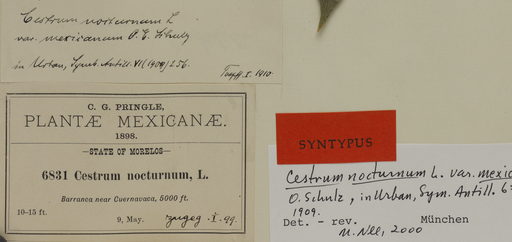 Cestrum nocturnum L
var. mexicanum O. E. Schulz
in Urban, Symb. Antill. VI (1909) 256.
I. 1910.
C. G. PRINGLE,
PLANTÆ MEXICANÆ.
1898.
STATE OF MORELOS
6831 Cestrum nocturnum, L.
Barranca near Cuernavaca, 5000 ft.
10-15 ft.
9, May. zugeg. I. 99.
SYNTYPUS
Cestrum nocturnum L. var. mexic
O. Schulz, in Urban, Sym. Antill. 6:
1909.
Det. - rev. München
M. Nee, 2000